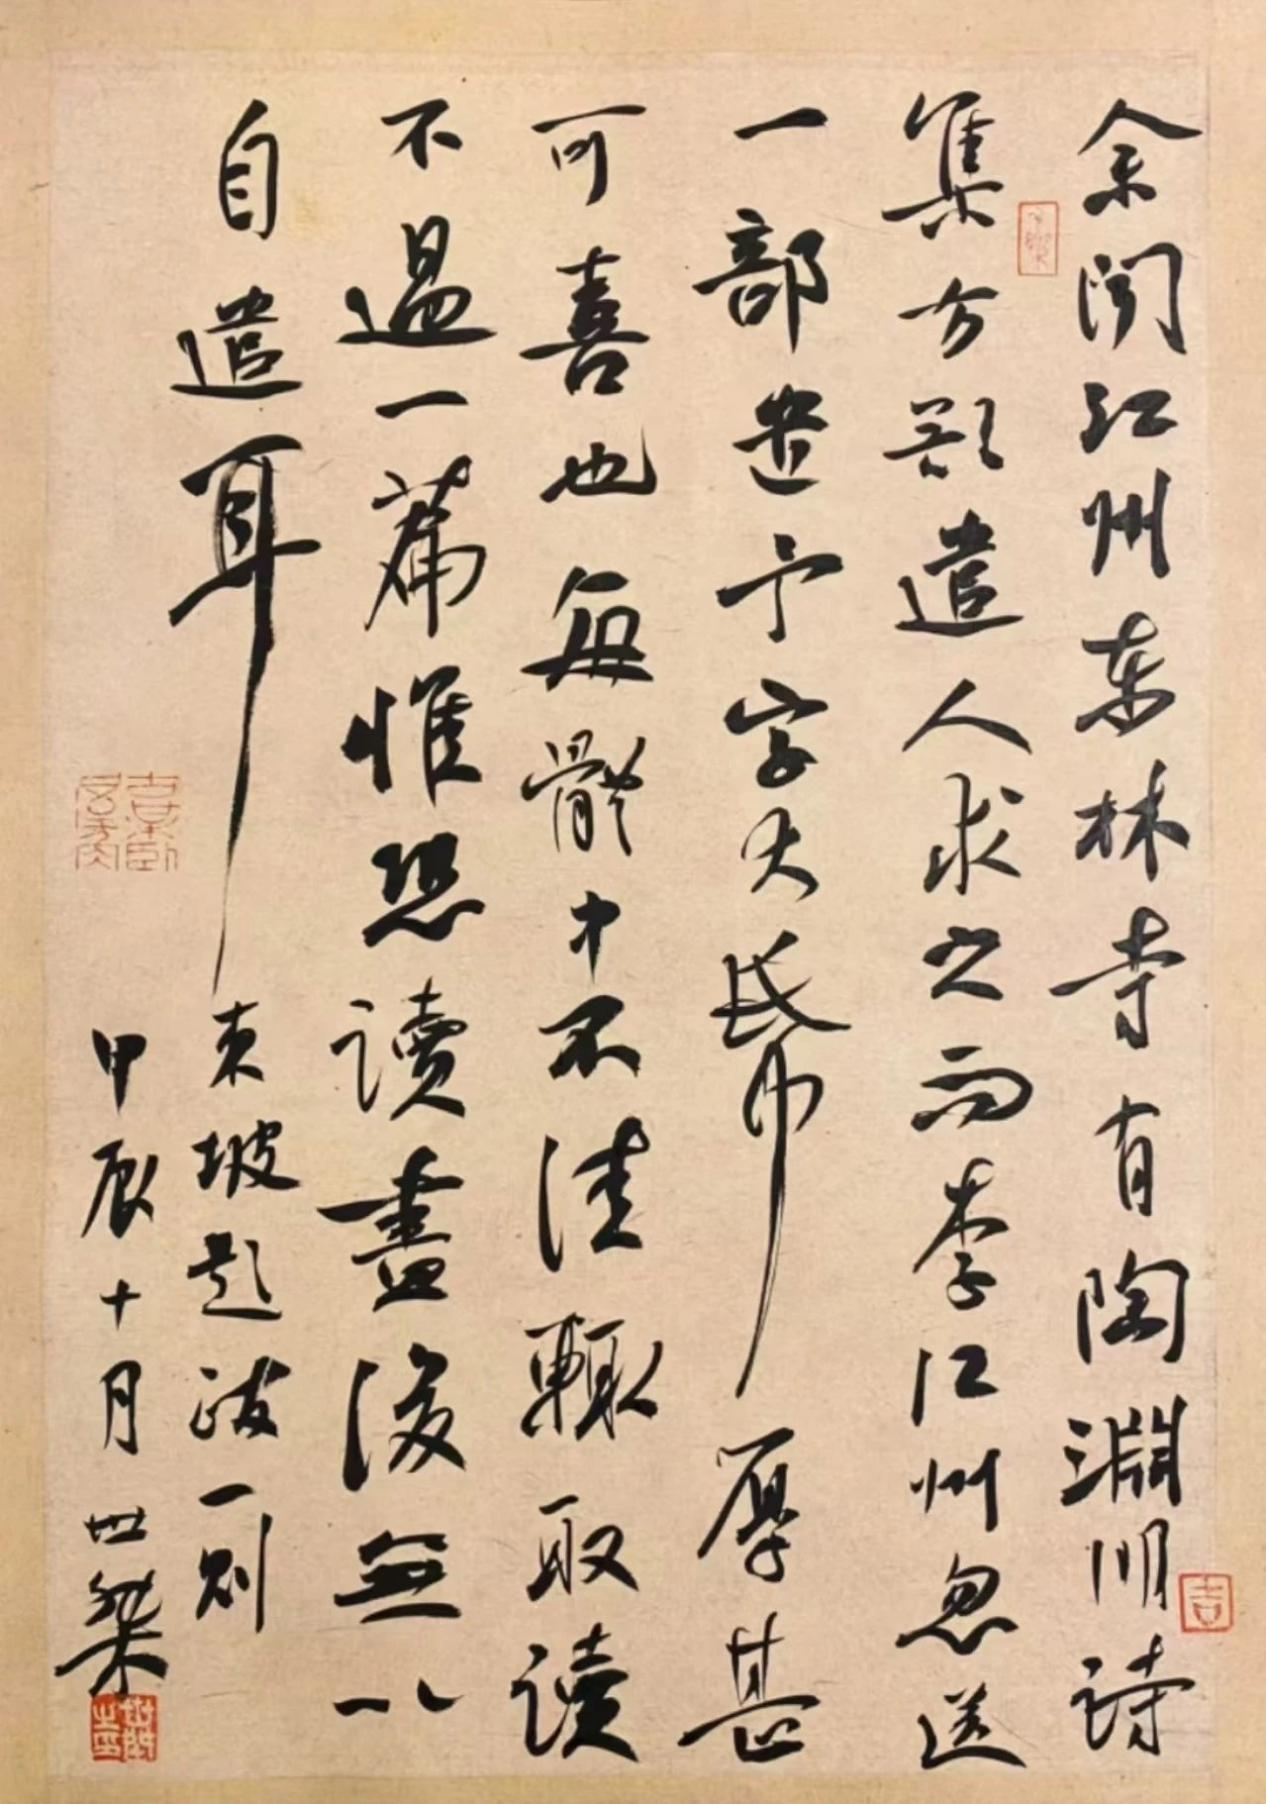 余闻江州东林寺有陶渊明诗
集方欲遣人求之而李江州忽送
一部遗予字大纸厚甚
可喜也每體中不佳輒取讀
不過一篇惟恐讀盡後無以
自遣耳
东坡题跋一则
甲辰十月世燊
吉